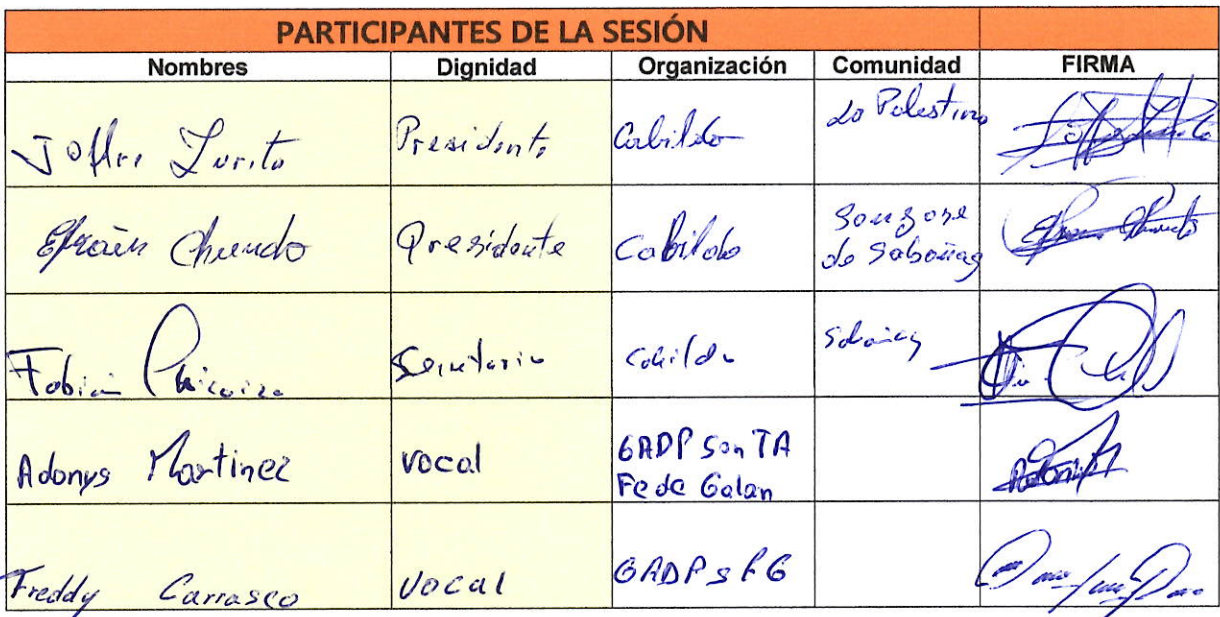 PARTICIPANTES DE LA SESIÓN
Nombres Dignidad Organización Comunidad FIRMA
Joffre Zurita Presidente Cabildo La Palestina
Efraín Chundo Presidente Cabildo
Fabián Secretario Cabildo
Adonys Martinez vocal GADP SanTA
Fe de Galan
Freddy Carrasco Vocal GADP SFG